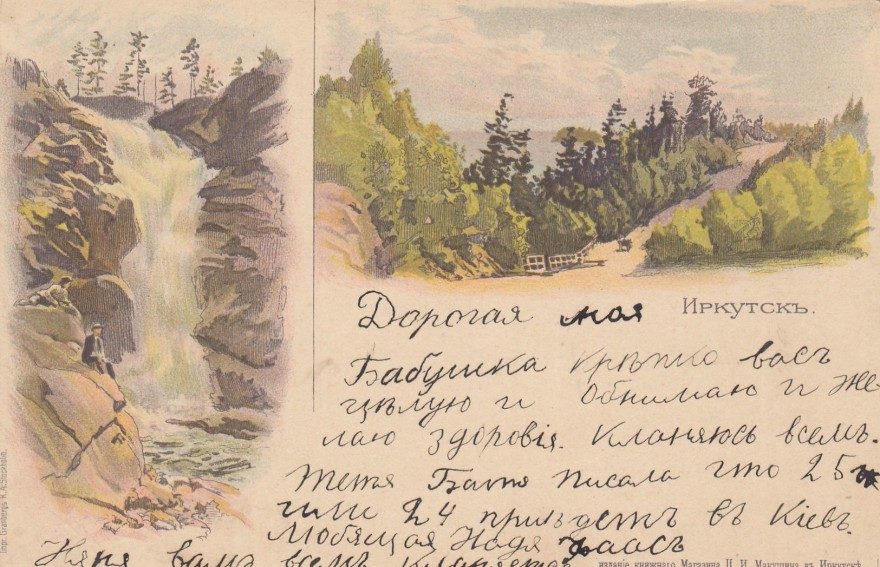 Иркутскъ.
Дорогая моя
Бабушка крѣпко васъ
цѣлую и обнимаю и же-
лаю здоровія. Кланяюсь всемъ.
Тетя Батя писала что 25
или 24 приѣдетъ въ Кіевъ.
Любящая Надя Фаасъ
Няня вамъ всемъ кланяется
Impr. Granbergs K. A. Stockholm.
изданіе книжнаго Магазина П. И. Макушина въ Иркутскѣ